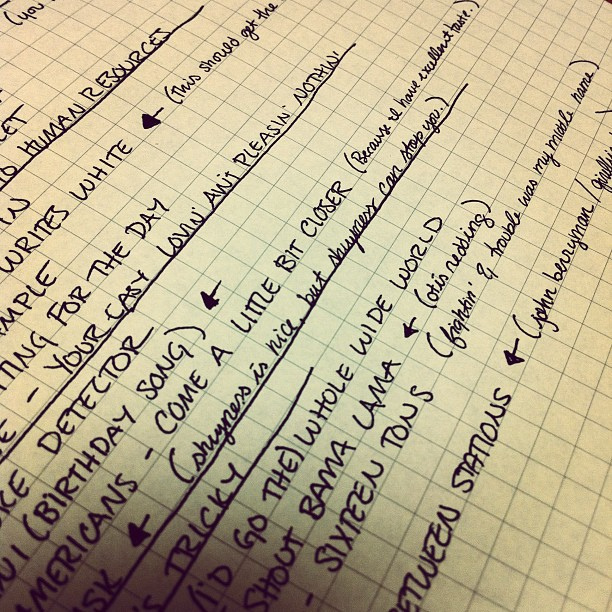 (you
LET
TO HUMAN RESOURCES
IN
WRITES WHITE (This should get the
AMPLE
TING FOR THE DAY
E - YOUR EASY LOVIN' AIN'T PLEASIN' NOTHIN'
KE DETECTOR
U! (BIRTHDAY SONG)
AMERICANS - COME A LITTLE BIT CLOSER (Because I have excellent taste.)
ASK (shyness is nice, but shyness can stop you.)
'S TRICKY
(I'D GO THE) WHOLE WIDE WORLD
SHOUT BAMA LAMA (otis redding)
- SIXTEEN TONS (fightin' & trouble was my middle name)
BETWEEN STATIONS (john berryman /